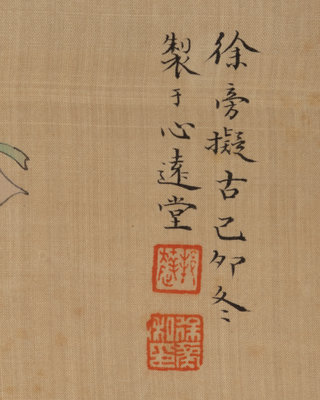 徐旁擬古己卯冬
製于心遠堂